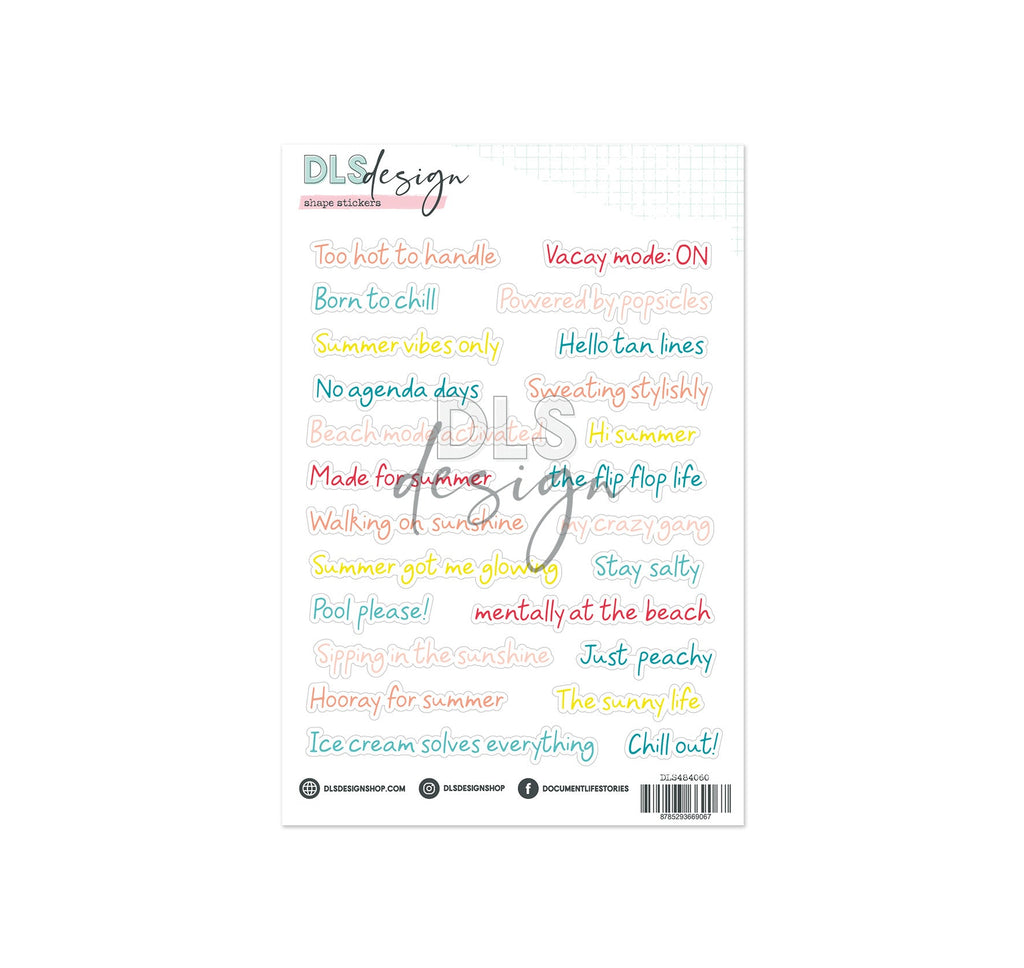 DLS design
shape stickers
Too hot to handle
Vacay mode: ON
Born to chill
Powered by popsicles
Summer vibes only
Hello tan lines
No agenda days
Sweating stylishly
Beach mode activated
Hi summer
Made for summer
the flip flop life
Walking on sunshine
my crazy gang
Summer got me glowing
Stay salty
Pool please!
mentally at the beach
Sipping in the sunshine
Just peachy
Hooray for summer
The sunny life
Ice cream solves everything
Chill out!
DLS
design
DLSDESIGNSHOP.COM
DLSDESIGNSHOP
DOCUMENTLIFESTORIES
DLS484060
8785293669067